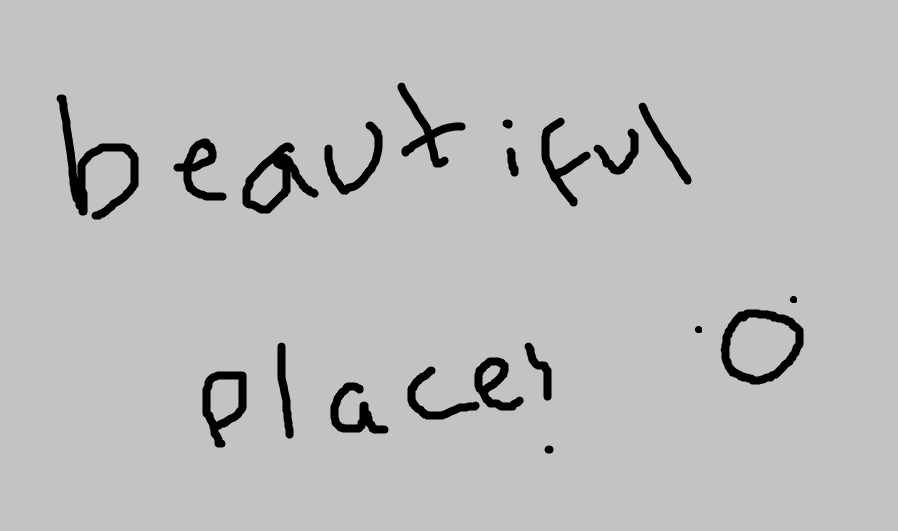 beautiful
place!